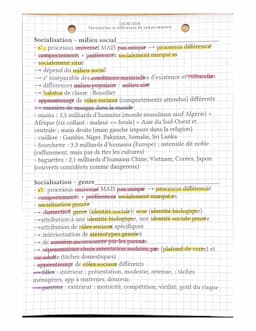 Socialisation – milieu social
processus universel MAIS pas unique → processus différencié
comportements + préférences socialement marqués
socialement situé
→ dépend du milieu social
→ s' inséparable des conditions matérielles d'existence et culturelle
→ différences milieu populaire / milieu aisé
→ habitus de classe : Bourdieu
→ apprentissage de rôles sociaux (comportements attendus) différents
→ manière de manger dans le monde
- mains : 1,5 milliard d'humains (monde musulman sauf Algérie) +
Afrique (riz collant : malaxé => boule) + Asie du Sud-Ouest et
centrale ; main droite (main gauche impure dans la religion)
- cuillère : Gambie, Niger, Pakistan, Somalie, Sri Lanka
- fourchette : 3,3 milliards d'humains (Europe) ; ustensile dit noble
(raffinement, mais pas du être les cultures)
- baguettes : 2,1 milliards d'humains Chine, Vietnam, Corées, Japon
(couverts considérés comme dangereux)
Socialisation – genre
processus universel MAIS pas unique → processus différencié
comportements + préférences socialement marqués
socialisation genrée
→ distinction genre (identité sociale) / sexe (identité biologique)
→ attribution à une identité biologique, une identité sociale genrée
→ attribution de rôles sociaux spécifiques
→ intériorisation de stéréotypes genrés
→ de manière inconsciente par les parents
(plafond de verre) et
vie adulte (tâches domestiques)
apprentissage de rôles sociaux différents
→ filles : intérieur ; présentation, modestie, retenue, ; tâches
ménagères, app à materner, douceur,
→ garçons : extérieur ; motricité, compétition, virilité, goût du risque